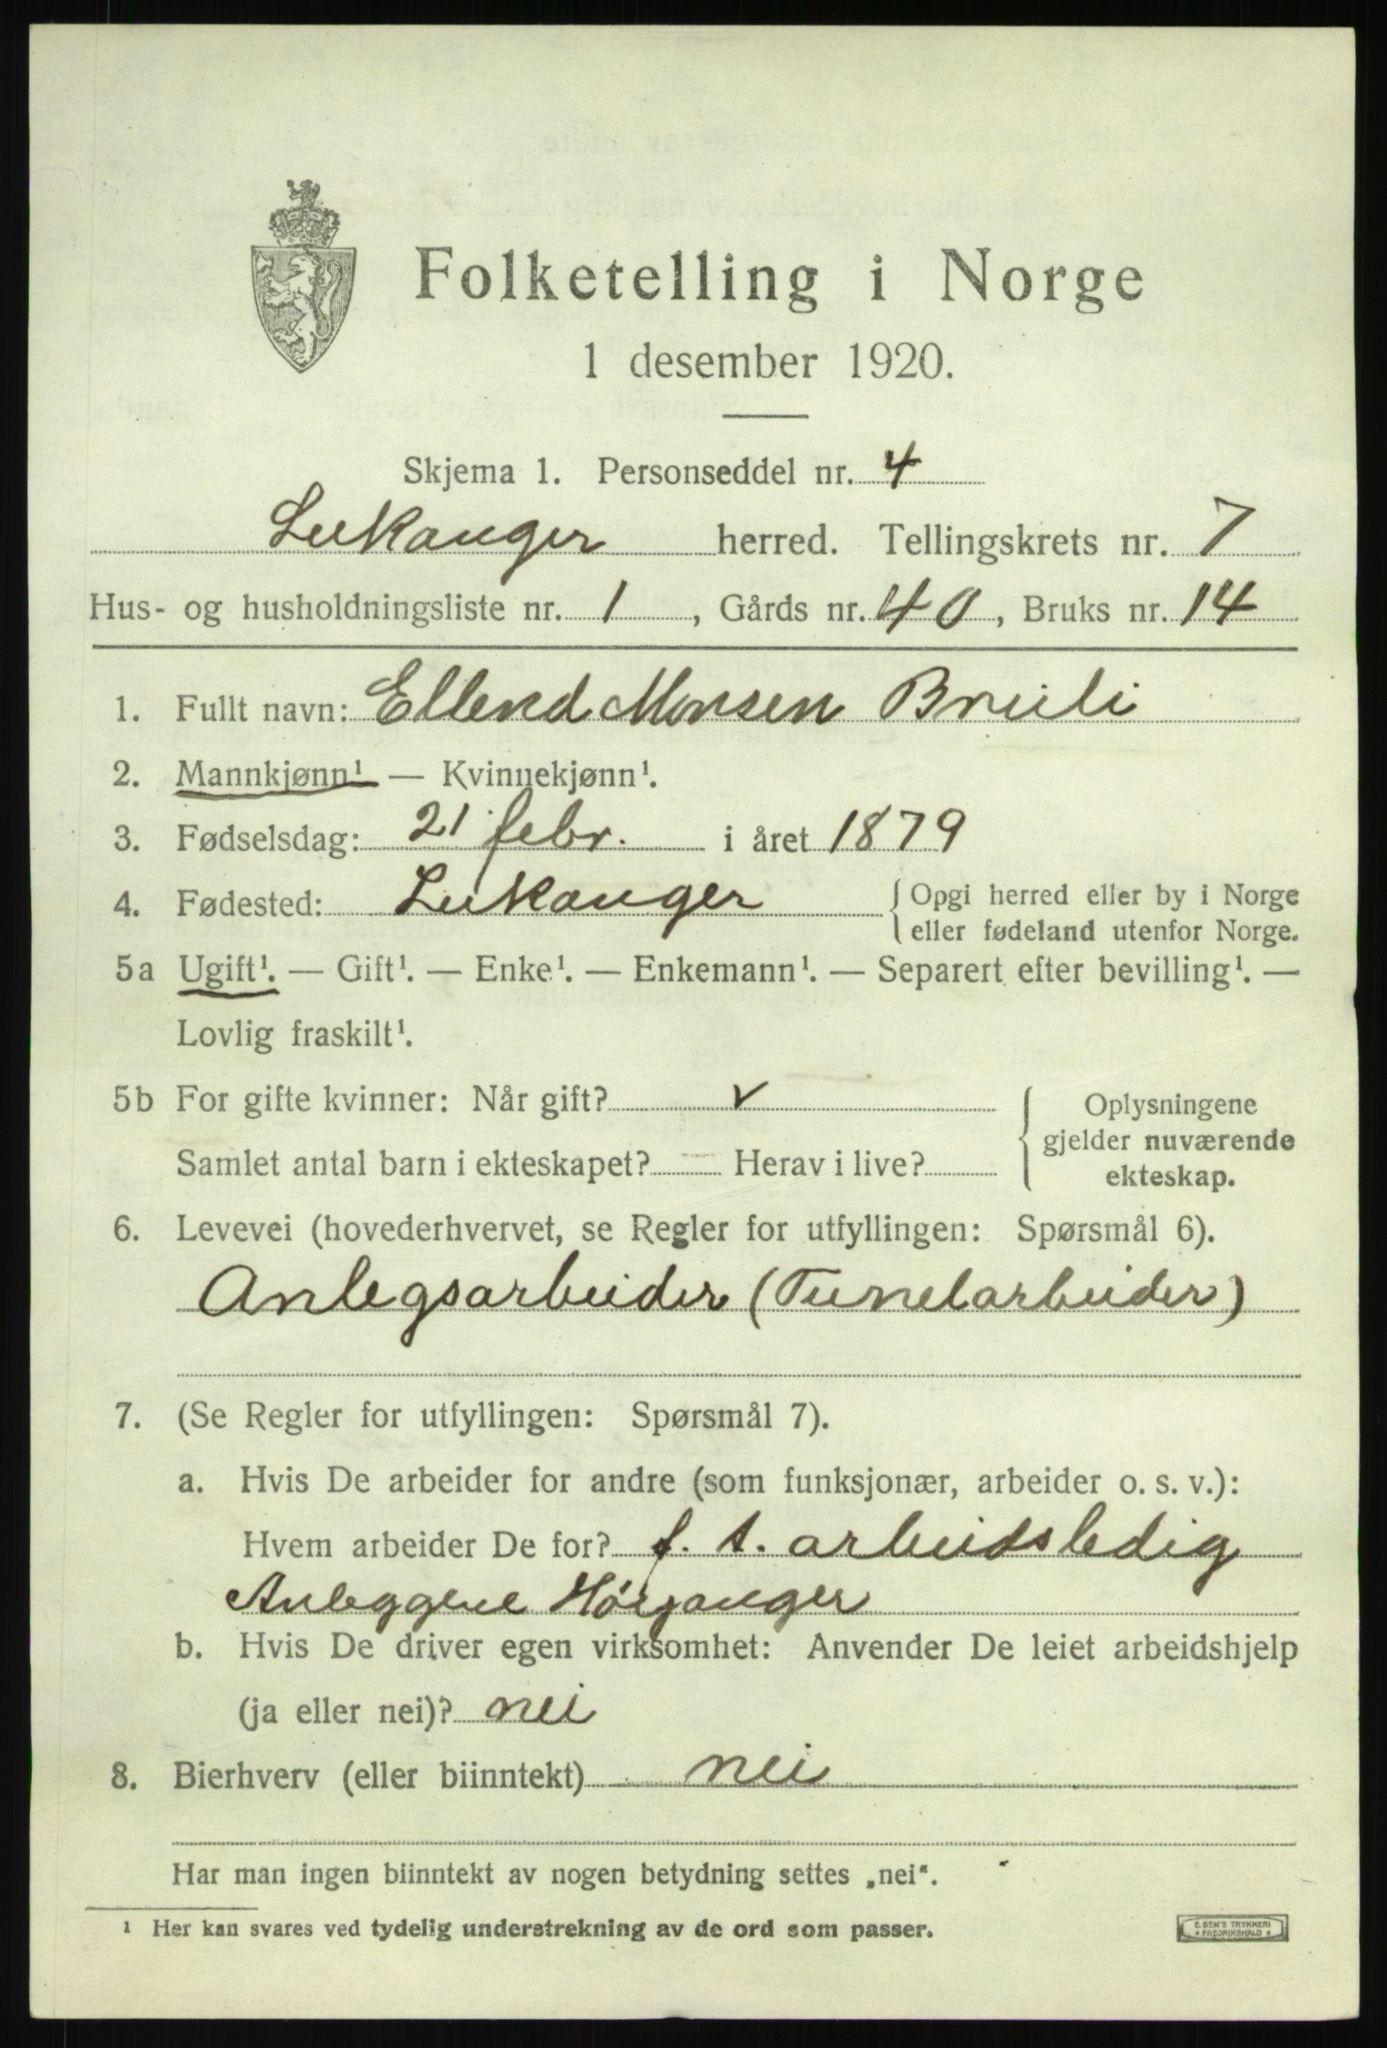 Folketelling i Norge
1 desember 1920.
Skjema 1. Personseddel nr. 4
Leikanger herred. Tellingskrets nr. 7
Hus- og husholdningsliste nr. 1, Gårds nr. 40, Bruks nr. 14
1. Fullt navn: Ellend Monsen Breili
2. Mannkjønn¹ — Kvinnekjønn¹.
3. Fødselsdag: 21 febr. i året 1879
4. Fødested: Leikanger { Opgi herred eller by i Norge
eller fødeland utenfor Norge.
5a Ugift¹. — Gift¹. — Enke¹. — Enkemann¹. — Separert efter bevilling¹. —
Lovlig fraskilt¹.
5b For gifte kvinner: Når gift? v
Samlet antal barn i ekteskapet? — Herav i live?
{ Oplysningene
gjelder nuværende
ekteskap.
6. Levevei (hovederhvervet, se Regler for utfyllingen: Spørsmål 6).
Anlegsarbeider (Tunelarbeider)
7. (Se Regler for utfyllingen: Spørsmål 7).
a. Hvis De arbeider for andre (som funksjonær, arbeider o. s. v.):
Hvem arbeider De for? f. t. arbeidsledig
Anleggene Høyanger
b. Hvis De driver egen virksomhet: Anvender De leiet arbeidshjelp
(ja eller nei)? nei
8. Bierhverv (eller biinntekt) nei
Har man ingen biinntekt av nogen betydning settes „nei“.
¹ Her kan svares ved tydelig understrekning av de ord som passer.
E. SEM'S TRYKKERI
* FREDRIKSHALD *